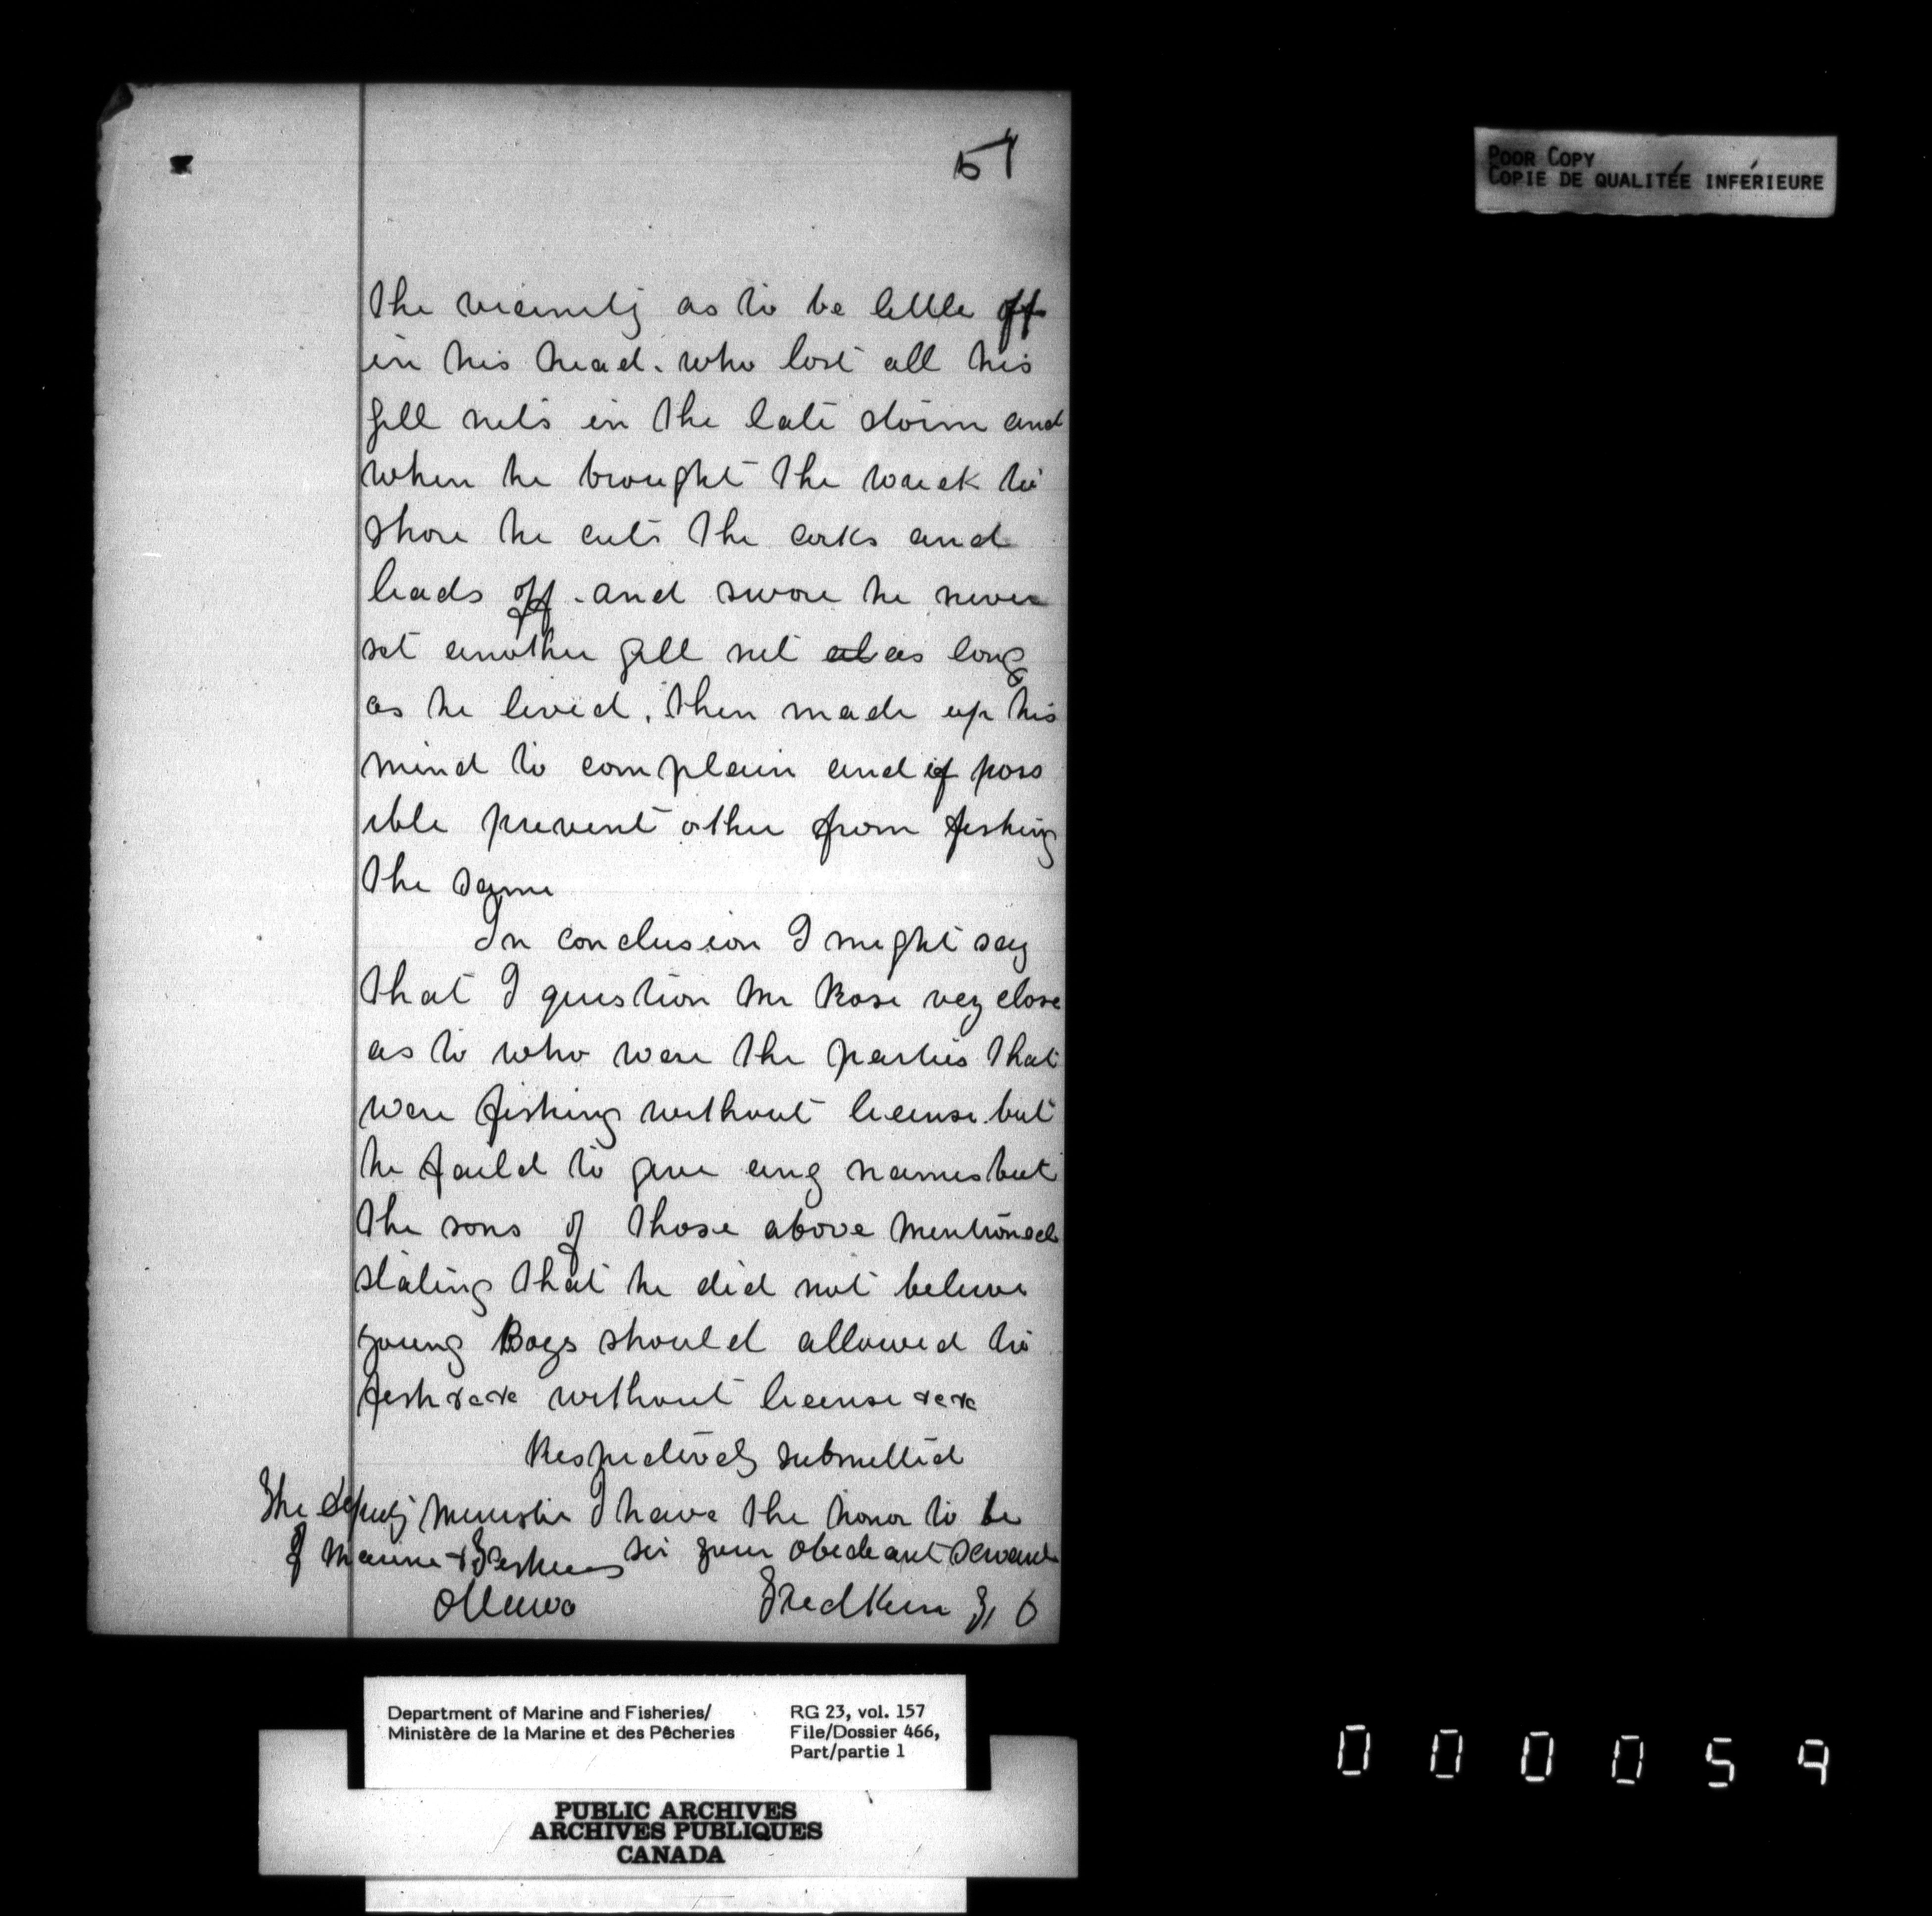 57
POOR COPY
COPIE DE QUALITÉE INFÉRIEURE
the vicinity as to be little off
in his head. who lost all his
gill nets in the late storm and
when he brought the wreck to
shore he cuts the corks and
leads off. and swore he never
set another gill net al as long
as he lived. then made up his
mind to complain and if poss
ible prevent other from fishing
the same
In conclusion I might say
that I question Mr Rose very close
as to who were the parties that
were fishing without license. but
he faild to give any names but
the sons of those above mentioned
stating that he did not believe
young Boys should allowed to
fish &c&c without license &c&c
Respectively submitted
The deputy Minister I have the honor to be
of Marine & Fisheries sir your obedeant servant
Ottawa Fred Kerr F, O
Department of Marine and Fisheries/
Ministère de la Marine et des Pêcheries
RG 23, vol. 157
File/Dossier 466,
Part/partie 1
PUBLIC ARCHIVES
ARCHIVES PUBLIQUES
CANADA
000059